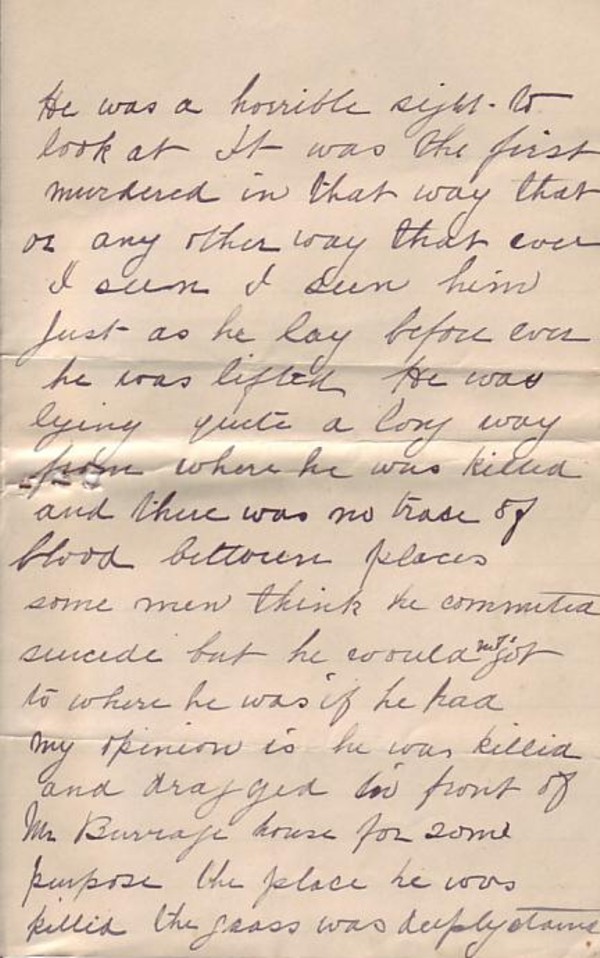 He was a horrible sight to
look at It was the first
murdered in that way that
or any other way that ever
I seen I seen him
Just as he lay before ever
he was lifted He was
lying quite a long way
from where he was killed
and there was no trase of
blood between places
some men think he commited
suicide but he would not got
to where he was if he had
my opinion is he was killid
and dragged in front of
Mr Burrage house for some
purpose the place he was
killid the grass was deeply